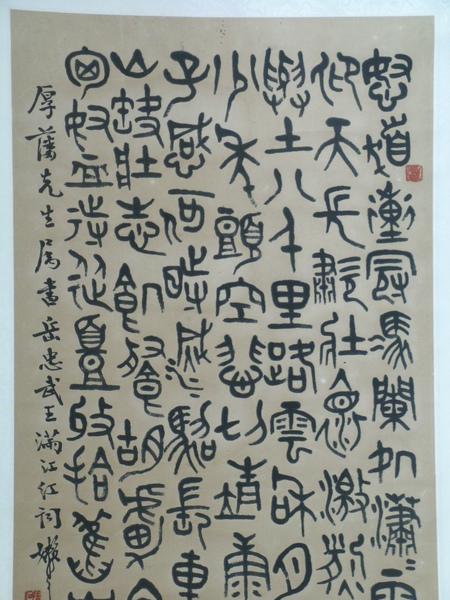 怒髮衝冠馮闌処瀟〻雨
仰天長嘯壯懷激烈
與土八千里路雲和月
少年頭空悲切靖康
子感何時滅駕長車
山缺壯志飢餐胡虜
匈奴血待從頭收拾舊山
厚藩先生屬書岳忠武王滿江紅詞